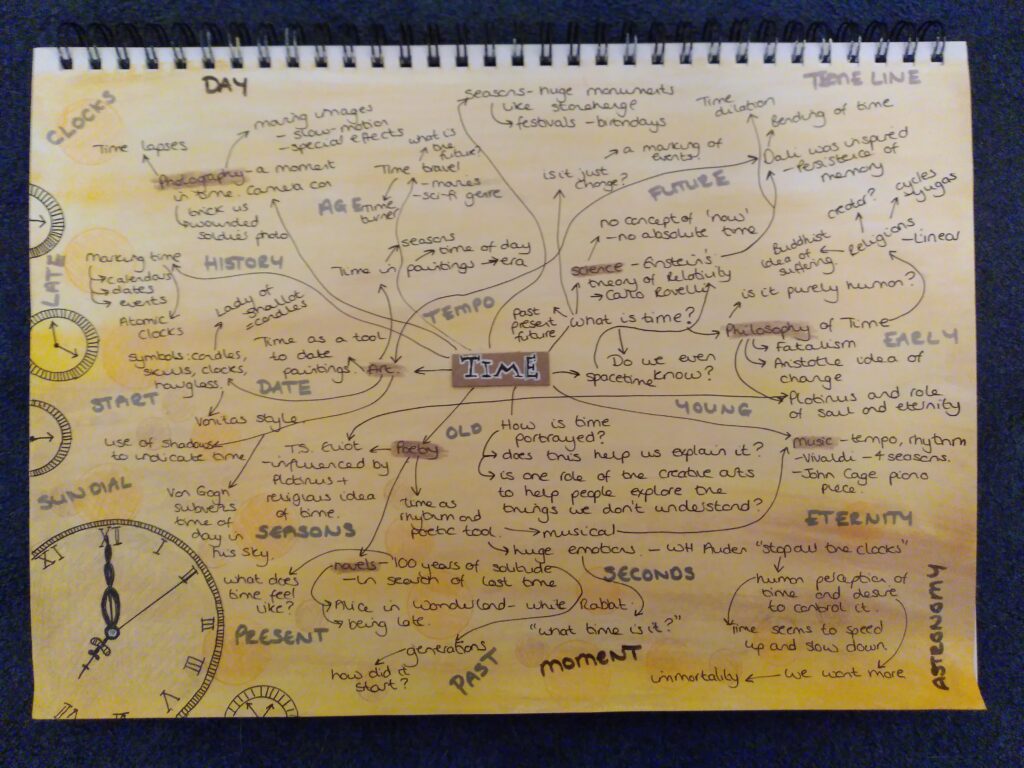 DAY
TIME LINE
CLOCKS
Time lapses
moving images
- slow-motion
- special effects
Photography - a moment
in time. Camera can
trick us
wounded
soldier photo
what is
the
future?
Time travel
- movies
- sci-fi genre
Time
turner
AGE
seasons - huge monuments
like stonehenge
festivals - birthdays
Time
dilation
Bending of time
Dali was inspired
- Persistence of
memory
a marking of
events?
is it just
change?
FUTURE
no concept of 'now'
- no absolute time
science - Einstein's
theory of Relativity
Carlo Rovelli
creator?
cycles
yugas
Religions
- Linear
Buddhist
idea of
suffering.
LATE
marking time
calendars
dates
events
Atomic
clocks
HISTORY
seasons
time of day
Time in paintings → era
TEMPO
Past
present
future
what is time?
is it purely human?
Philosophy of Time
Fatalism
Aristotle idea of
change
Plotinus and role
of soul and eternity
EARLY
Lady of
Shallot
= candles
symbols: candles,
skulls, clocks,
hourglass.
Time as a tool
to date
paintings
Art.
TIME
spacetime
Do we even
know?
START
DATE
Vanitas style.
use of shadows
to indicate time
SUNDIAL
OLD
YOUNG
T.S. Eliot
- influenced by
Plotinus +
religious idea
of time.
Poetry
How is time
portrayed?
does this help us explain it?
is one role of the creative arts
to help people explore the
things we don't understand?
music - tempo, rhythm
- Vivaldi - 4 seasons.
- John Cage piano
piece.
Van Gogh
subverts
time of
day in
his sky.
SEASONS
Time as
rhythm and
poetic tool.
musical
ETERNITY
huge emotions. - WH Auden "stop all the clocks"
what does
time feel
like?
novels - '100 years of solitude
- In search of lost time
Alice in Wonderland - white Rabbit.
being late.
SECONDS
human perception of
time and desire
to control it.
Time seems to speed
up and slow down
"what time is it?"
PRESENT
generations
how did it
start?
PAST
MOMENT
immortality
we want more
ASTRONOMY
XI
XII
I
II
III